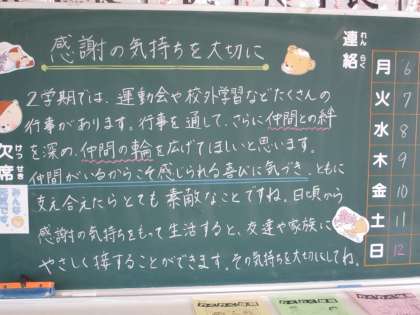 感謝の気持ちを大切に
2学期では、運動会や校外学習などたくさんの
行事があります。行事を通して、さらに仲間との絆
を深め、仲間の輪を広げてほしいと思います。
仲間がいるからこそ感じられる喜びに気づき、ともに
支え合えたらとても素敵なことですね。日頃から
感謝の気持ちをもって生活すると、友達や家族に
やさしく接することができます。その気持ちを大切にしてね。
連絡
れんらく
月 6
火 7
水 8
木 9
金 10
土 11
日 12
欠席
けっせき